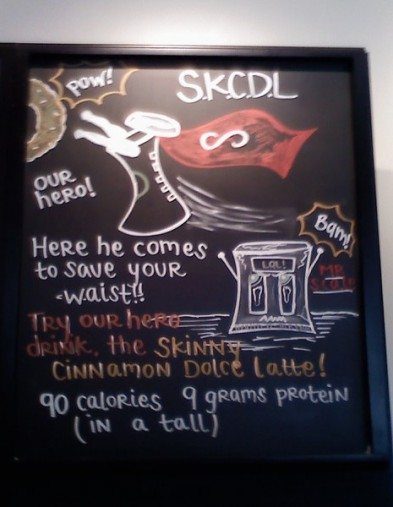 POW!
S.K.C.D.L
S
OUR
HERO!
Bam!
Here he comes
to save your
-waist!!
LOL!
MR
Try our hero
drink, the SKINNY
CINNAMON DOLCE Latte!
90 calories 9 grams protein
(in a tall)